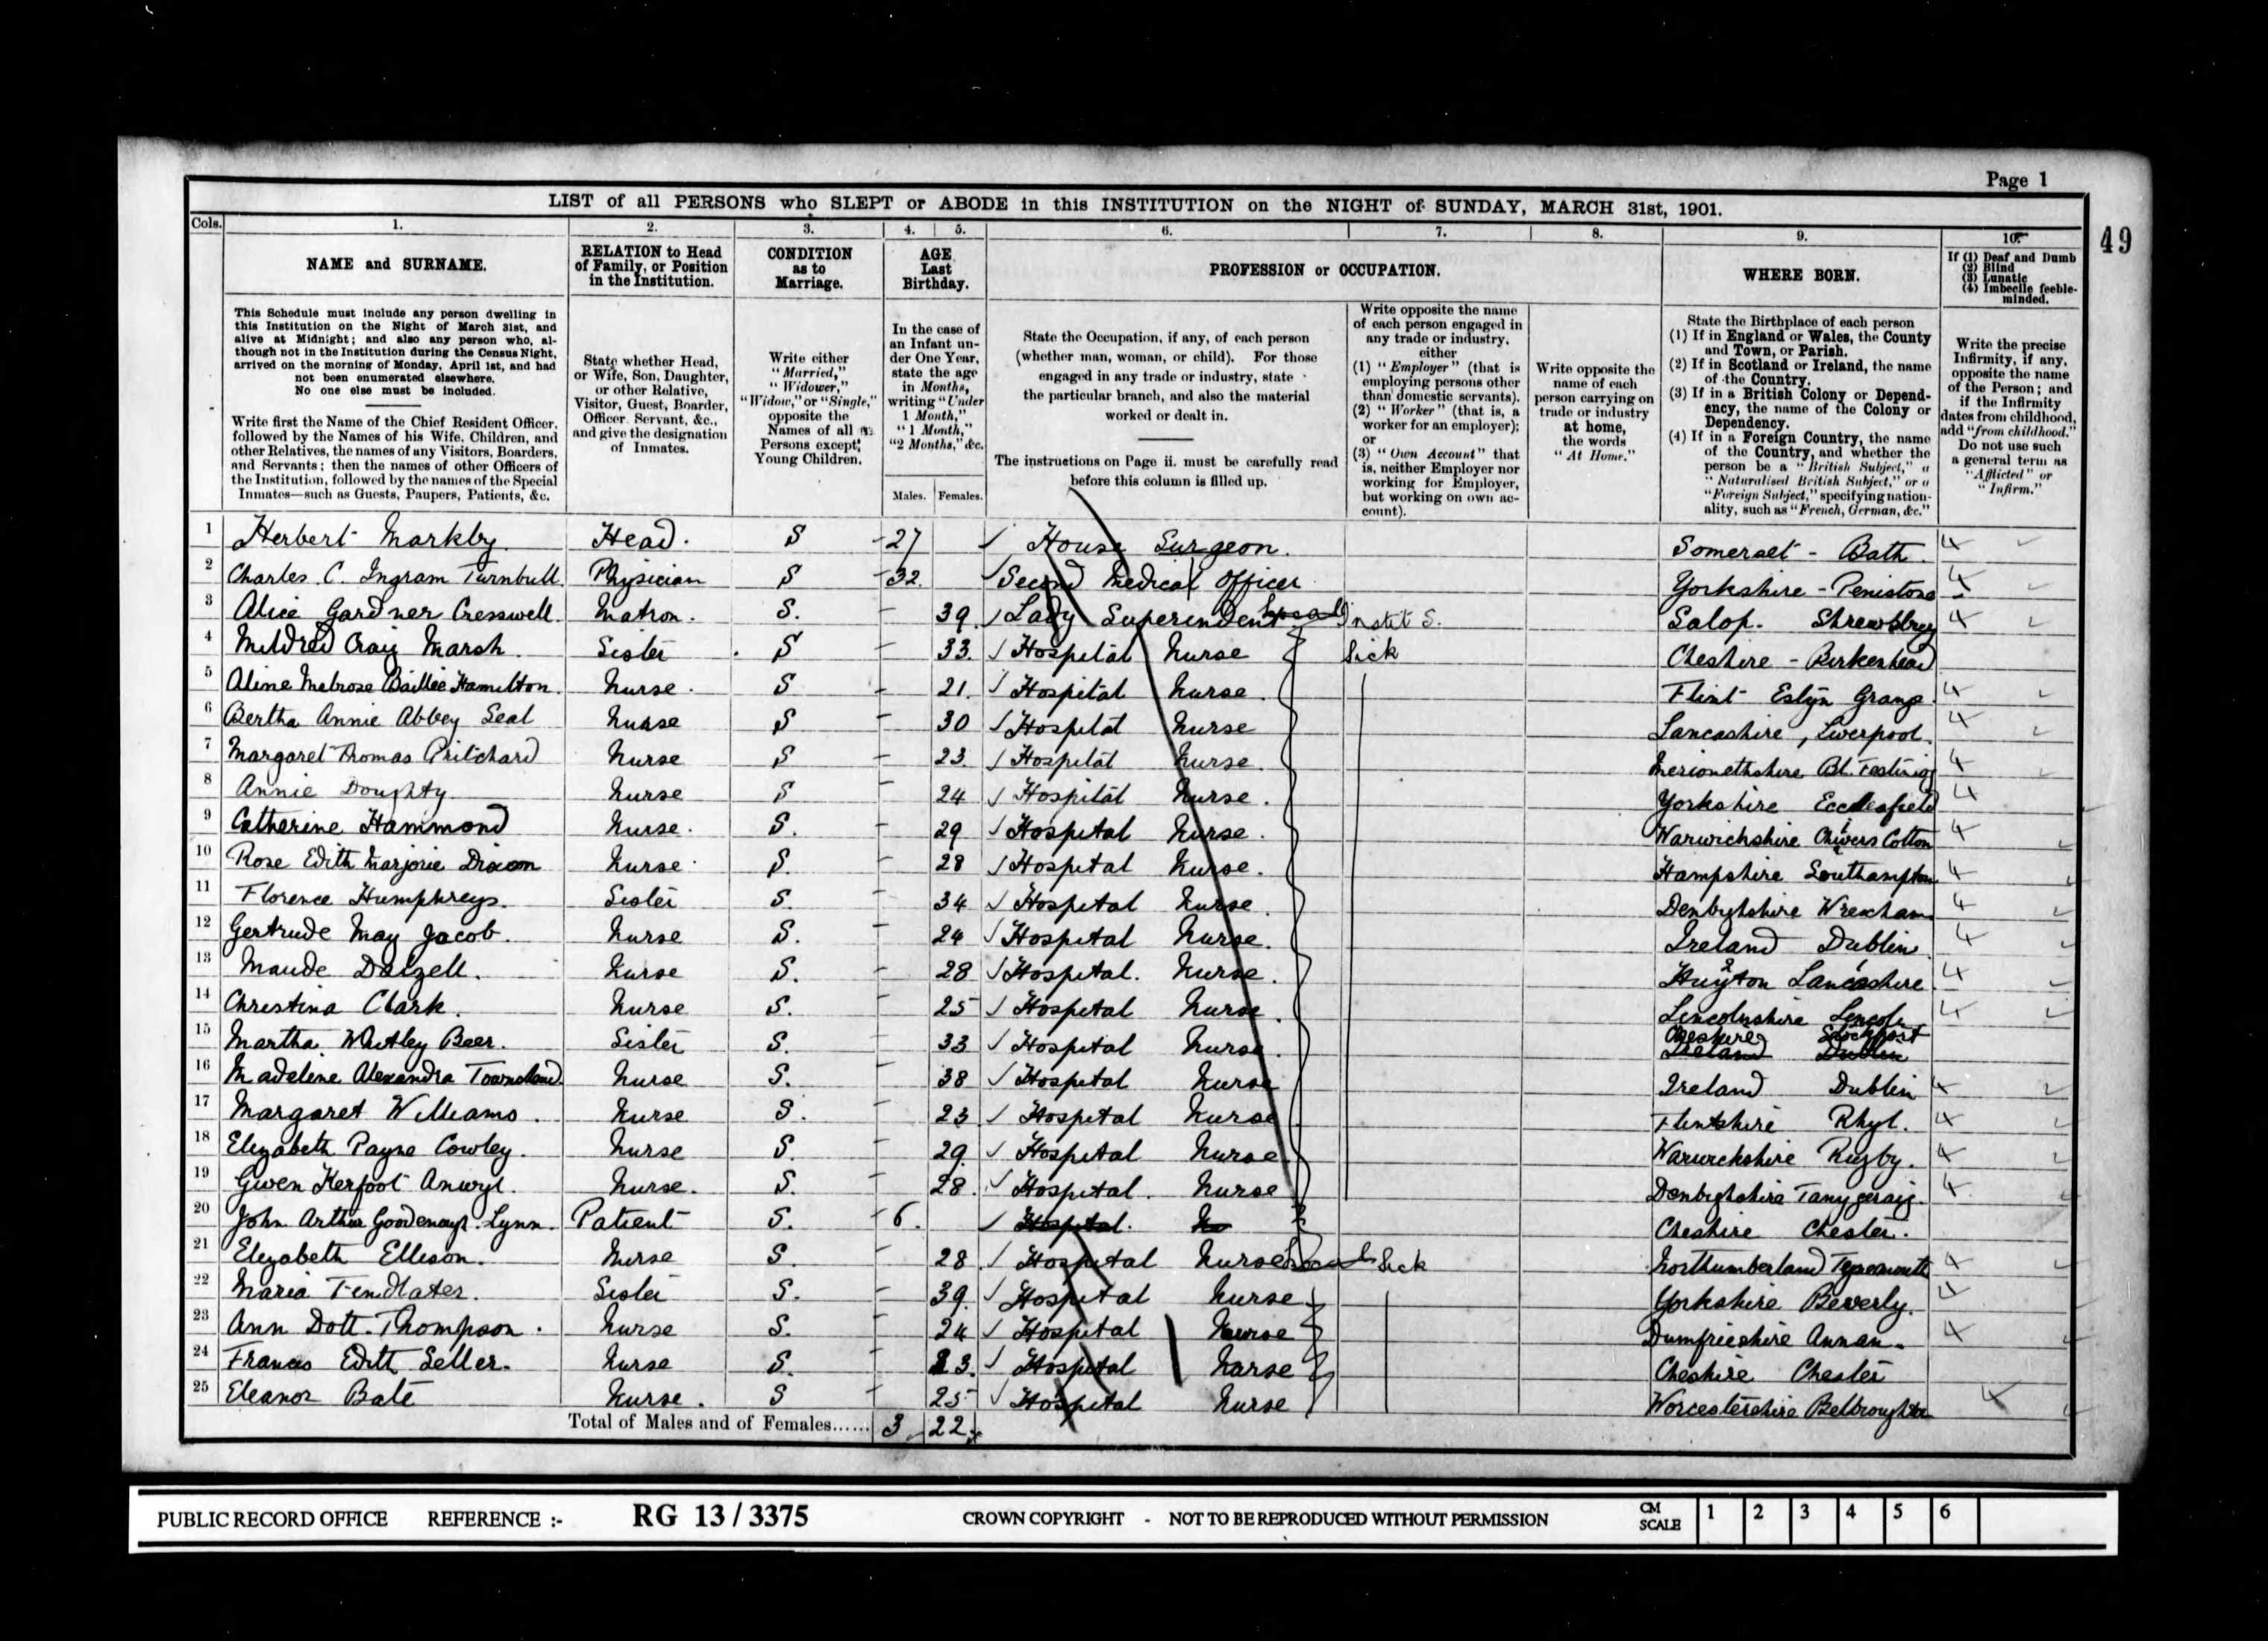 Page 1
49
LIST of all PERSONS who SLEPT or ABODE in this INSTITUTION on the NIGHT of SUNDAY, MARCH 31st, 1901.
Cols. 1. 2. 3. 4. 5. 6. 7. 8. 9. 10.
NAME and SURNAME.
This Schedule must include any person dwelling in
this Institution on the Night of March 31st, and
alive at Midnight; and also any person who, al-
though not in the Institution during the Census Night,
arrived on the morning of Monday, April 1st, and had
not been enumerated elsewhere.
No one else must be included.
Write first the Name of the Chief Resident Officer,
followed by the Names of his Wife, Children, and
other Relatives, the names of any Visitors, Boarders,
and Servants; then the names of other Officers of
the Institution, followed by the names of the Special
Inmates—such as Guests, Paupers, Patients, &c.
RELATION to Head
of Family, or Position
in the Institution.
State whether Head,
or Wife, Son, Daughter,
or other Relative,
Visitor, Guest, Boarder,
Officer Servant, &c.,
and give the designation
of Inmates.
CONDITION
as to
Marriage.
Write either
"Married,"
"Widower,"
"Widow," or "Single,"
opposite the
Names of all
Persons except
Young Children.
AGE
Last
Birthday.
In the case of
an Infant un-
der One Year,
state the age
in Months,
writing "Under
1 Month,"
"1 Month,"
"2 Months," &c.
Males. Females.
PROFESSION or OCCUPATION.
State the Occupation, if any, of each person
(whether man, woman, or child). For those
engaged in any trade or industry, state
the particular branch, and also the material
worked or dealt in.
The instructions on Page ii. must be carefully read
before this column is filled up.
Write opposite the name
of each person engaged in
any trade or industry,
either
(1) "Employer" (that is
employing persons other
than domestic servants).
(2) "Worker" (that is, a
worker for an employer);
or
(3) "Own Account" that
is, neither Employer nor
working for Employer,
but working on own ac-
count).
Write opposite the
name of each
person carrying on
trade or industry
at home,
the words
"At Home."
WHERE BORN.
State the Birthplace of each person
(1) If in England or Wales, the County
and Town, or Parish.
(2) If in Scotland or Ireland, the name
of the Country.
(3) If in a British Colony or Depend-
ency, the name of the Colony or
Dependency.
(4) If in a Foreign Country, the name
of the Country, and whether the
person be a "British Subject," a
"Naturalised British Subject," or a
"Foreign Subject," specifying nation-
ality, such as "French, German, &c."
If (1) Deaf and Dumb
(2) Blind
(3) Lunatic
(4) Imbecile feeble-
minded.
Write the precise
Infirmity, if any,
opposite the name
of the Person; and
if the Infirmity
dates from childhood,
add "from childhood."
Do not use such
a general term as
"Afflicted" or
"Infirm."
1 Herbert Markby. Head. S 27 House Surgeon. Somerset - Bath 4
2 Charles C. Ingram Turnbull. Physician S 32. Second Medical Officer Yorkshire - Penistone 4
3 Alice Gardner Cresswell. Matron. S. 39. Lady Superendent Instit S. Salop. Shrewsbury 4
4 Mildred Craig Marsh. Sister S 33. Hospital Nurse Sick Cheshire - Birkenhead
5 Aline Melrose Baillie Hamilton. Nurse. S 21. Hospital Nurse. Flint Estyn Grange. 4
6 Bertha Annie Abbey Seal Nurse S 30 Hospital Nurse Lancashire, Liverpool. 4
7 Margaret Thomas Pritchard Nurse S 23. Hospital Nurse. Merionethshire Bl. Festiniog 4
8 Annie Doughty Nurse S 24 Hospital Nurse. Yorkshire Ecclesfield 4
9 Catherine Hammond Nurse. S. 29 Hospital Nurse. Warwickshire Chivers Cotton 4
10 Rose Edith Marjorie Dixon Nurse. S. 28 Hospital Nurse. Hampshire Southampton 4
11 Florence Humphreys. Sister S. 34 Hospital Nurse. Denbighshire Wrexham 4
12 Gertrude May Jacob. Nurse S. 24 Hospital Nurse. Ireland Dublin 4
13 Maude Dalzell. Nurse S. 28 Hospital. Nurse. Huyton Lancashire. 4
14 Christina Clark. Nurse S. 25 Hospital Nurse. Lincolnshire Lincoln 4
15 Martha Whitley Beer. Sister S. 33 Hospital Nurse. Cheshire Stockport
Ireland Dublin
16 Madeline Alexandra Townsend Nurse S. 38 Hospital Nurse Ireland Dublin 4
17 Margaret Williams. Nurse S. 23 Hospital Nurse Flintshire Rhyl. 4
18 Elizabeth Payne Cowley. Nurse S. 29. Hospital Nurse Warwickshire Rugby. 4
19 Gwen Kerfoot Anwyl. Nurse. S. 28. Hospital. Nurse Denbighshire Tanygraig. 4
20 John Arthur Goodenough Lynn. Patient S. 6. Hospital. Cheshire Chester.
21 Elizabeth Ellison. Nurse S. 28. Hospital Nurse Sick Northumberland Tynemouth 4
22 Maria Sister S. 39. Hospital Nurse Yorkshire Beverly. 4
23 Ann Dott Thompson. Nurse S. 24 Hospital Nurse Dumfrieshire Annan. 4
24 Frances Edith Seller. Nurse S. 23. Hospital Nurse Cheshire Chester
25 Eleanor Bate Nurse. S 25 Hospital Nurse Worcestershire Belbroughton 4
Total of Males and of Females...... 3 22
PUBLIC RECORD OFFICE REFERENCE :- RG 13 / 3375 CROWN COPYRIGHT - NOT TO BE REPRODUCED WITHOUT PERMISSION CM SCALE 1 2 3 4 5 6